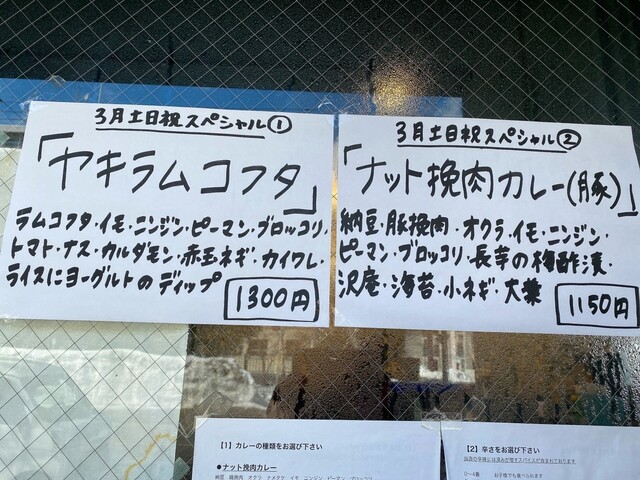 3月土日祝スペシャル①
「ヤキラムコフタ」
ラムコフタ・イモ・ニンジン・ピーマン・ブロッコリ
トマト・ナス・カルダモン・赤玉ネギ・カイワレ・
ライスにヨーグルトのディップ
1300円
3月土日祝スペシャル②
「ナット挽肉カレー(豚)」
納豆・豚挽肉・オクラ・イモ・ニンジン・
ピーマン・ブロッコリ・長芋の梅酢漬・
沢庵・海苔・小ネギ・大葉
1150円
【1】カレーの種類をお選び下さい
●ナット挽肉カレー
納豆 鶏挽肉 オクラ ナメタケ イモ ニンジン ピーマン ブロッコリ
【2】辛さをお選び下さい